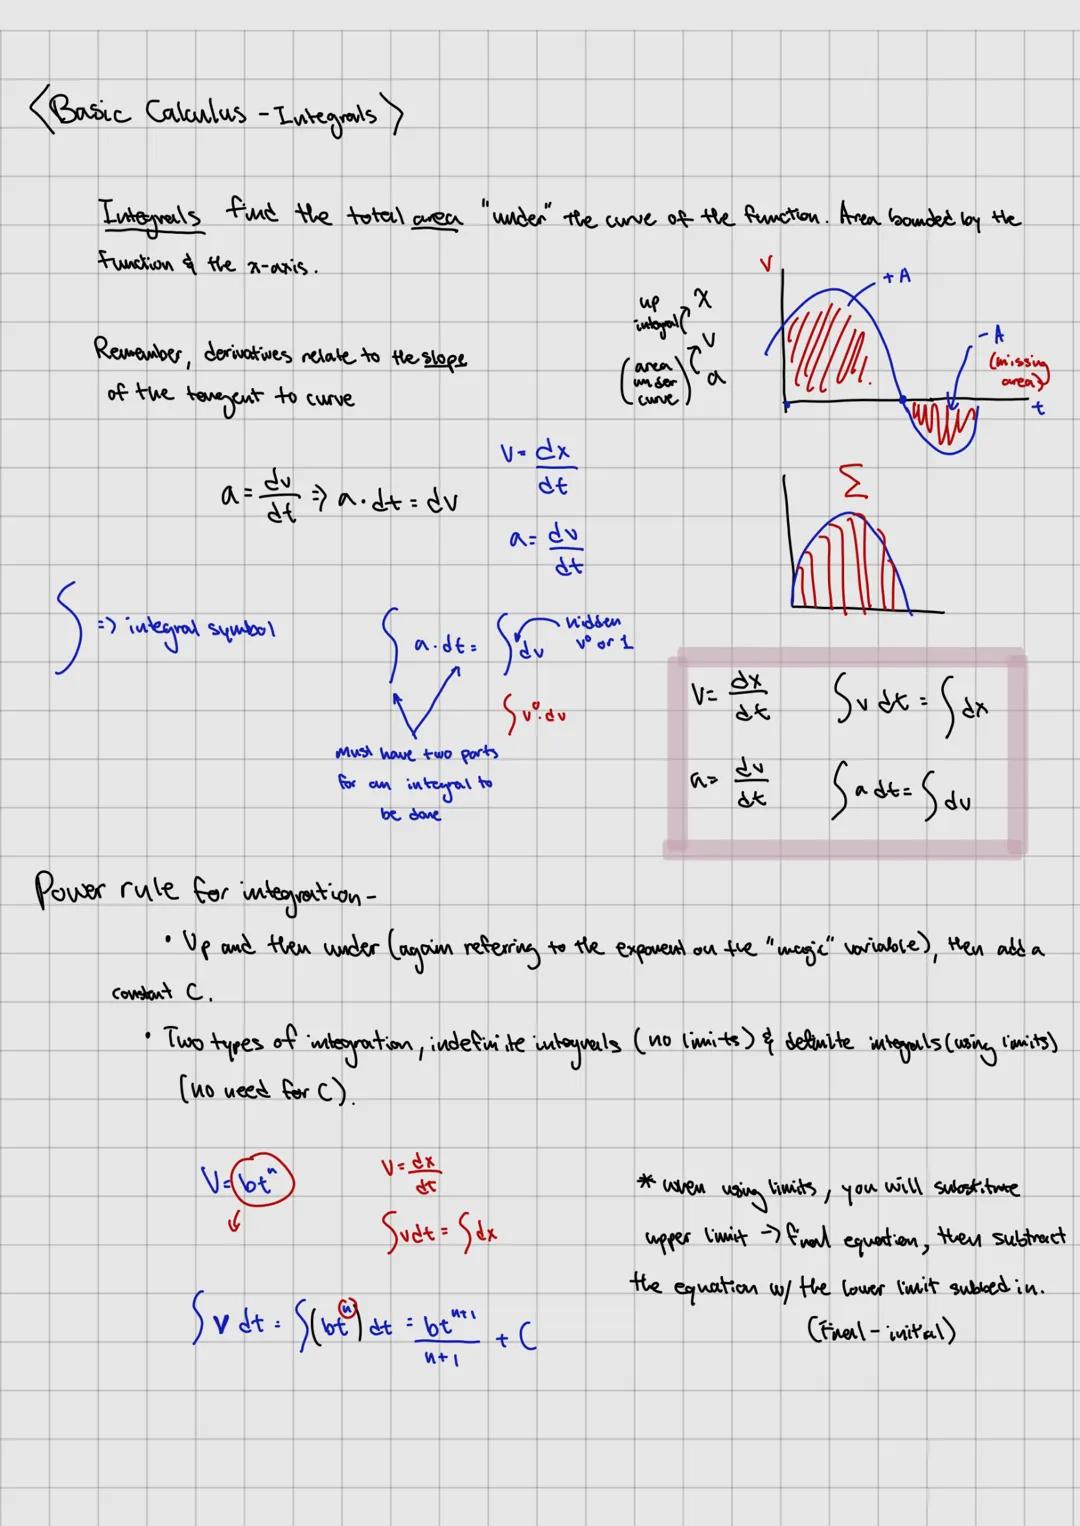 <Basic Calculus - Integrals>
Integrals find the total area "under" the curve of the function. Area bounded by the
function & the x-axis.
V
+A
-A
(missing
area)
t
up
integral
x
v
a
(area
under
curve)
Remember, derivatives relate to the slope
of the tangent to curve
a = dv/dt => a·dt = dv
V = dx/dt
a = dv/dt
Σ
∫ => integral symbol
∫ a·dt = ∫ dv
hidden
v⁰ or 1
∫ v⁰·dv
Must have two parts
for an integral to
be done
V = dx/dt ∫ v dt = ∫ dx
a = dv/dt ∫ a dt = ∫ dv
Power rule for integration -
• Up and then under (again referring to the exponent on the "magic" variable), then add a
constant C.
• Two types of integration, indefinite integrals (no limits) & definite integrals (using limits)
(no need for C).
V = btⁿ
V = dx/dt
∫ v dt = ∫ dx
∫ v dt = ∫ (btⁿ) dt = btⁿ⁺¹/n+1 + C
* when using limits, you will substitute
upper limit → final equation, then subtract
the equation w/ the lower limit subbed in.
(Final - initial)